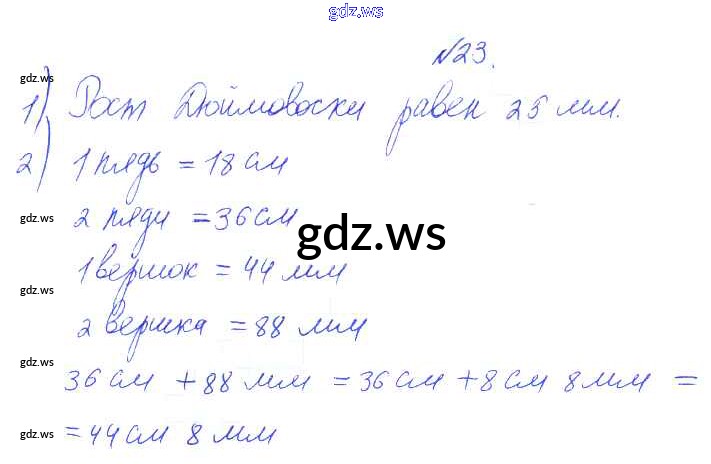 gdz.ws
№23.
gdz.ws
1) Рост Дюймовочки равен 25 мм.
gdz.ws
2) 1 пядь = 18 см
gdz.ws
2 пяди = 36 см
gdz.ws
1 вершок = 44 мм
gdz.ws
2 вершка = 88 мм
gdz.ws
36 см + 88 мм = 36 см + 8 см 8 мм =
gdz.ws
= 44 см 8 мм